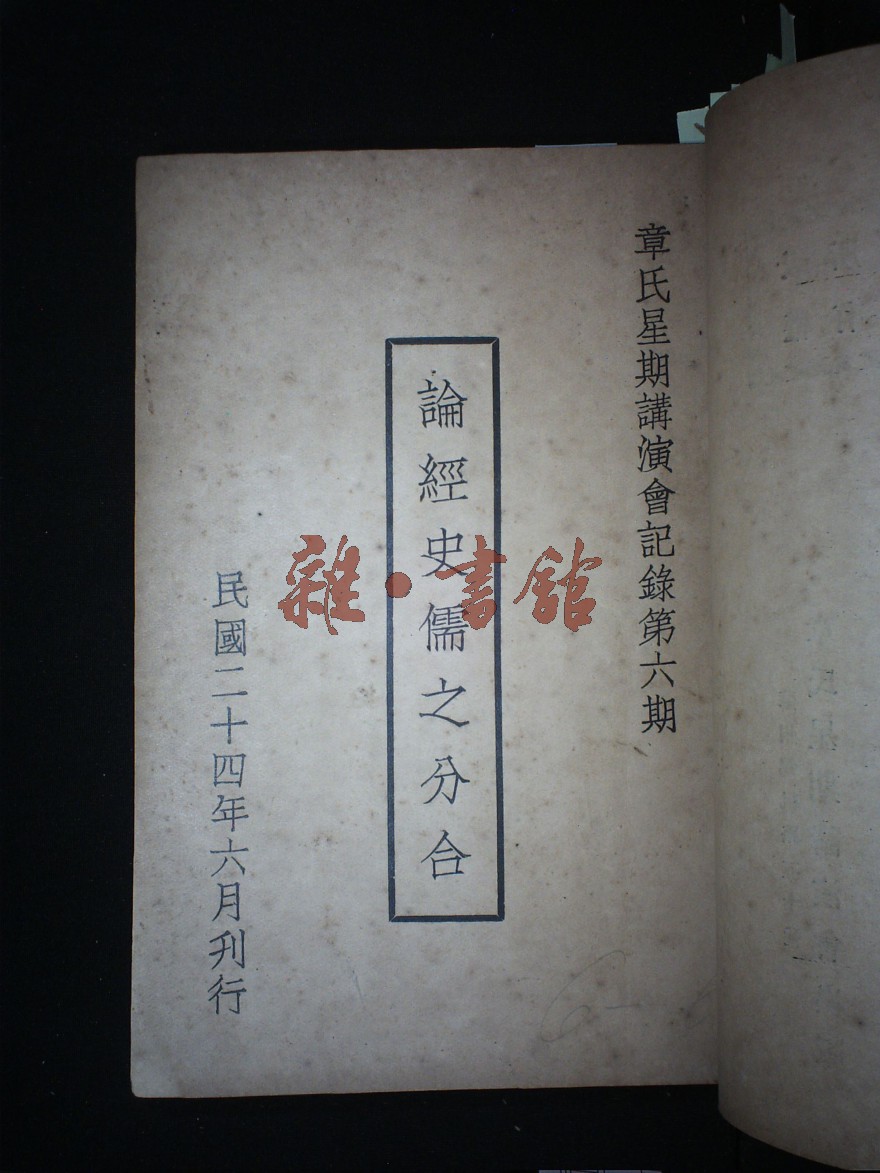 章氏星期講演會記錄第六期
論經史儒之分合
民國二十四年六月刋行
雜·書館